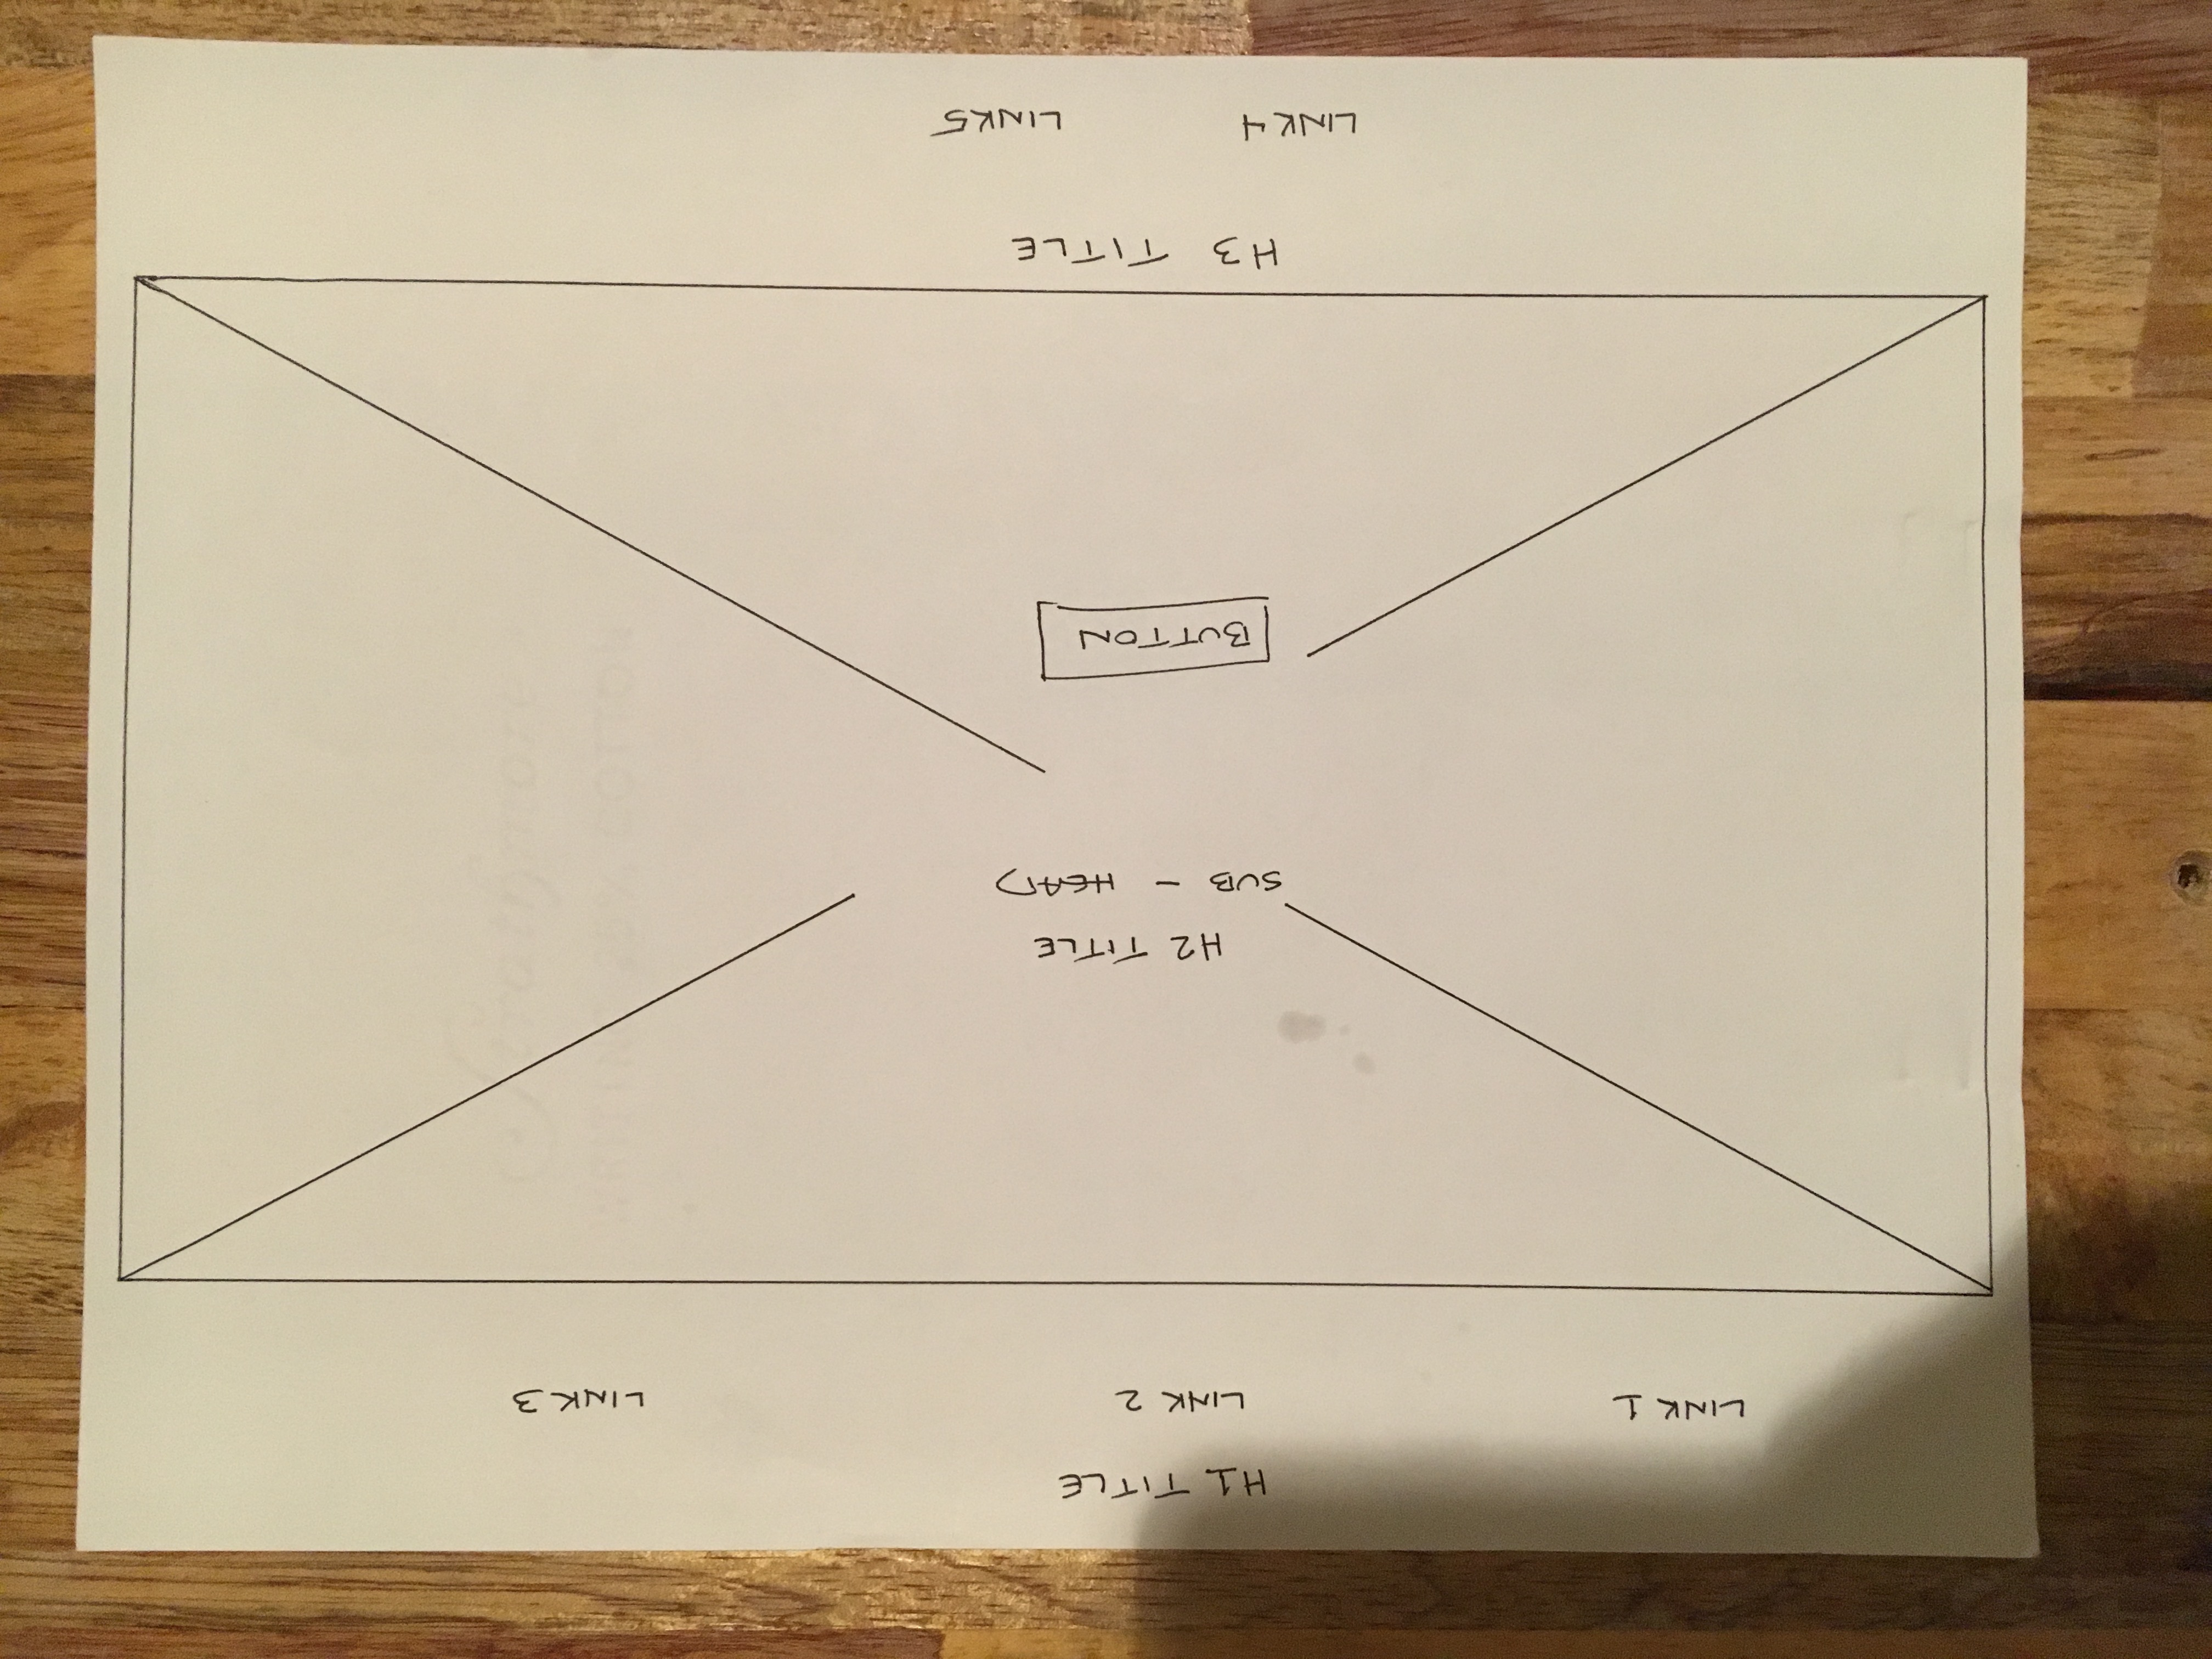 H1 TITLE
LINK 1 LINK 2 LINK 3
H2 TITLE
SUB - HEAD
BUTTON
H3 TITLE
LINK 4 LINK 5